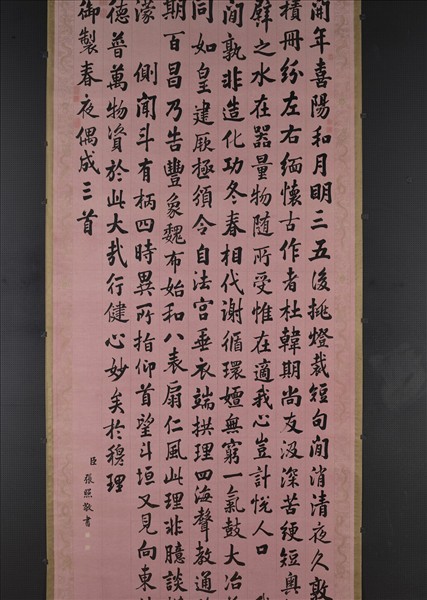 開年喜陽和月明三五後挑燈裁短句閒消清夜久敦
積冊紛左右緬懷古作者杜韓期尚友汲深苦綆短奧
之水在器量物隨所受惟在適我心豈計悅人口
間孰非造化功冬春相代謝循環嬗無窮一氣鼓大冶
同如皇建厥極須令自法宮垂衣端拱理四海聲教通
期百昌乃告豐象魏布始和八表扇仁風此理非臆談
濛 側聞斗有柄四時異所指仰首望斗垣又見向東
德普萬物資於此大哉行健心妙矣於穆理
御製春夜偶成三首
臣張照敬書